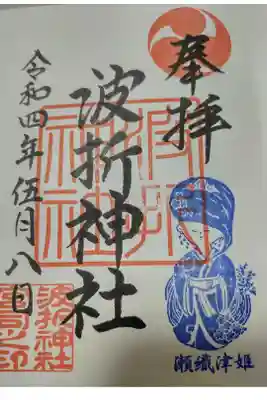 奉拝
波折神社
令和四年伍月八日
瀬織津姫
波折神社